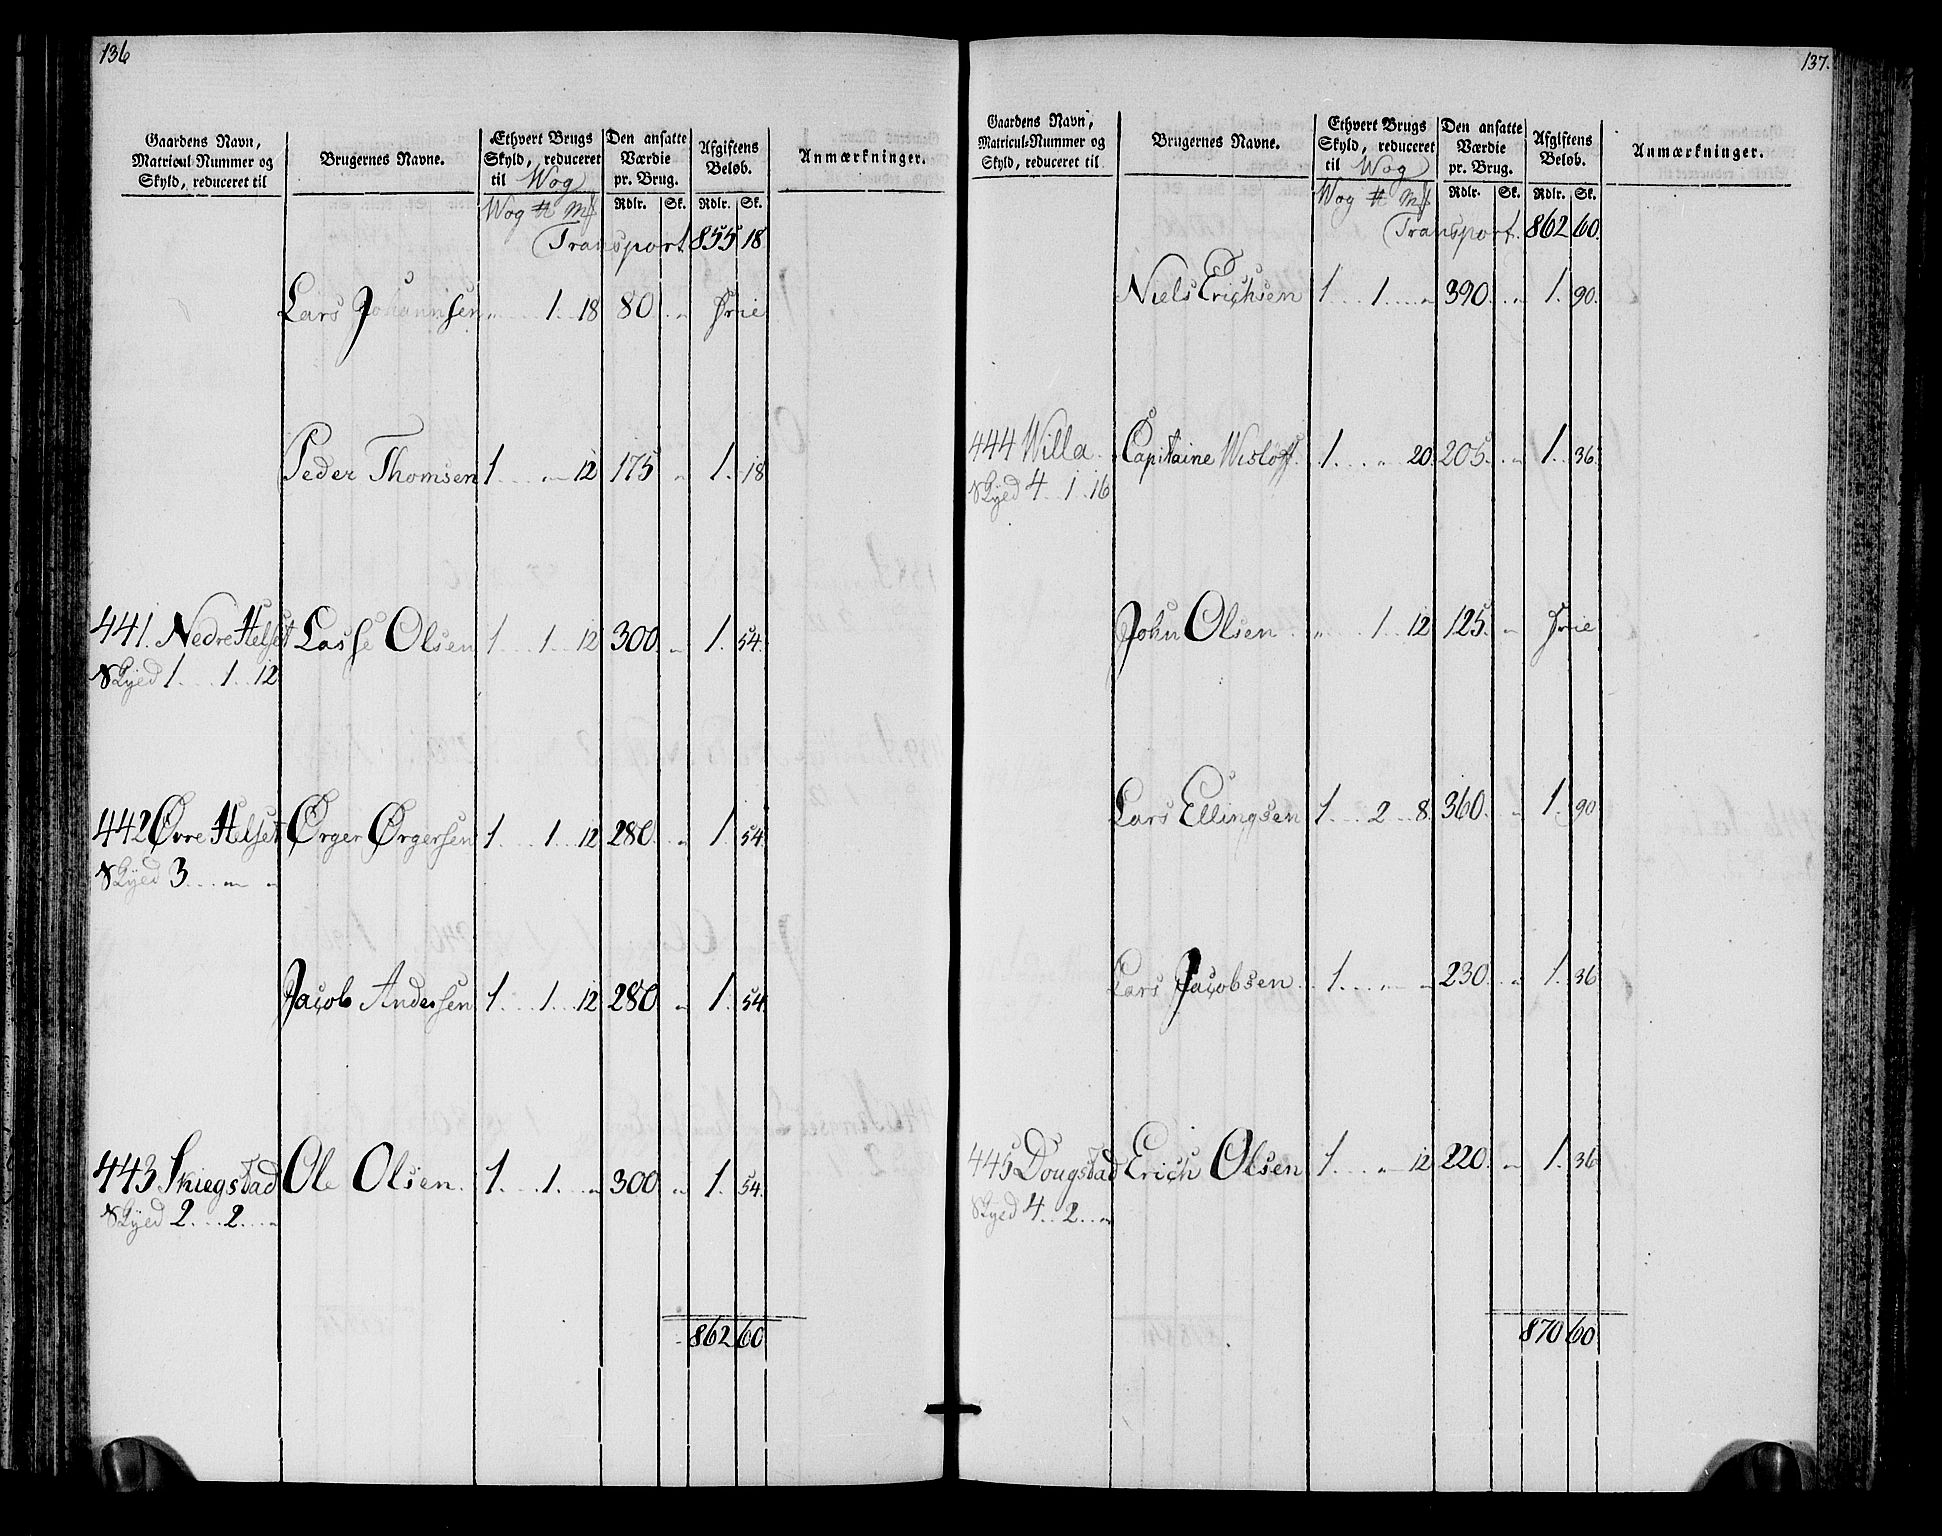 136
Gaardens Navn, Matricul-Nummer og Skyld, reduceret til
Brugernes Navne.
Ethvert Brugs Skyld, reduceret til Wog
Den ansatte Værdie pr. Brug.
Afgiftens Beløb.
Anmærkninger.
Wog ℔ M𝔩 Rdlr. Sk. Rdlr. Sk.
Transport 855 18
Lars Johannsen „ 1 18 80 „ Frie
Peder Thomsen 1 „ 12 175 „ 1 18
441. Nedre Helset Lasse Olsen 1 1 12 300 „ 1 54
Skyld 1 1 12
442 Øvre Helset Ørger Ørgersen 1 1 12 280 „ 1 54
Skyld 3 „ „
Jacob Andersen 1 1 12 280 „ 1 54
443 Skiegstad Ole Olsen 1 1 „ 300 „ 1 54
Skyld 2 2 „
862 60
137.
Gaardens Navn, Matricul-Nummer og Skyld, reduceret til
Brugernes Navne.
Ethvert Brugs Skyld, reduceret til Wog
Den ansatte Værdie pr. Brug.
Afgiftens Beløb.
Anmærkninger.
Wog ℔ M𝔩 Rdlr. Sk. Rdlr. Sk.
Transport. 862 60.
Niels Erichsen 1 1 „ 390 „ 1 90.
444 Willa Capitaine Wisløff 1 „ 20 205 „ 1 36
Skyld 4 1 16
John Olsen „ 1 12 125 „ Frie
Lars Ellingsen 1 2 8 360 „ 1 90
Lars Jacobsen 1 „ „ 230 „ 1 36
445 Dougstad Erich Olsen 1 „ 12 220 „ 1 36
Skyld 4 2 „
870 60